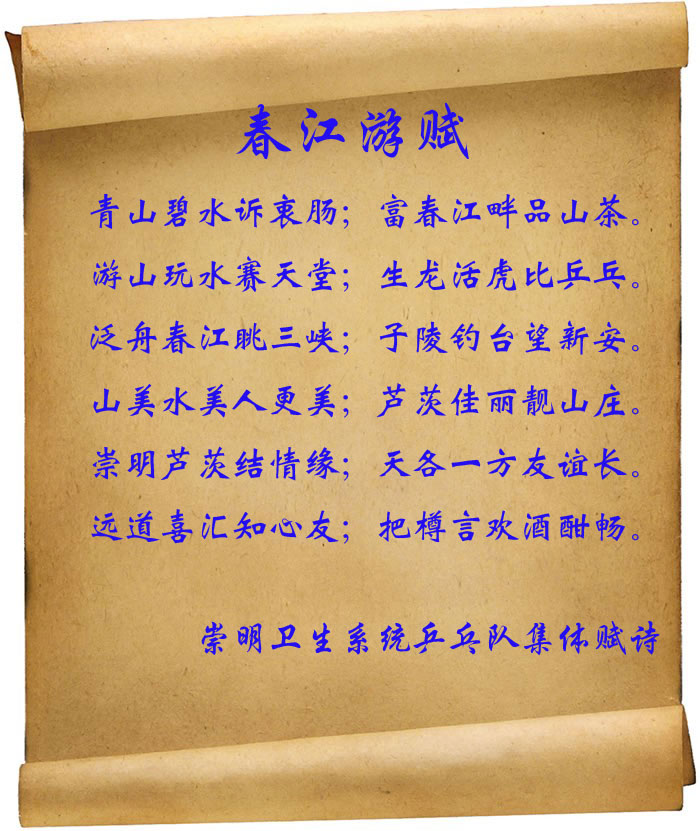 春江游赋
青山碧水诉衷肠；富春江畔品山茶。
游山玩水赛天堂；生龙活虎比乒乓。
泛舟春江眺三峡；子陵钓台望新安。
山美水美人更美；芦茨佳丽靓山庄。
崇明芦茨结情缘；天各一方友谊长。
远道喜汇知心友；把樽言欢酒酣畅。
崇明卫生系统乒乓队集体赋诗